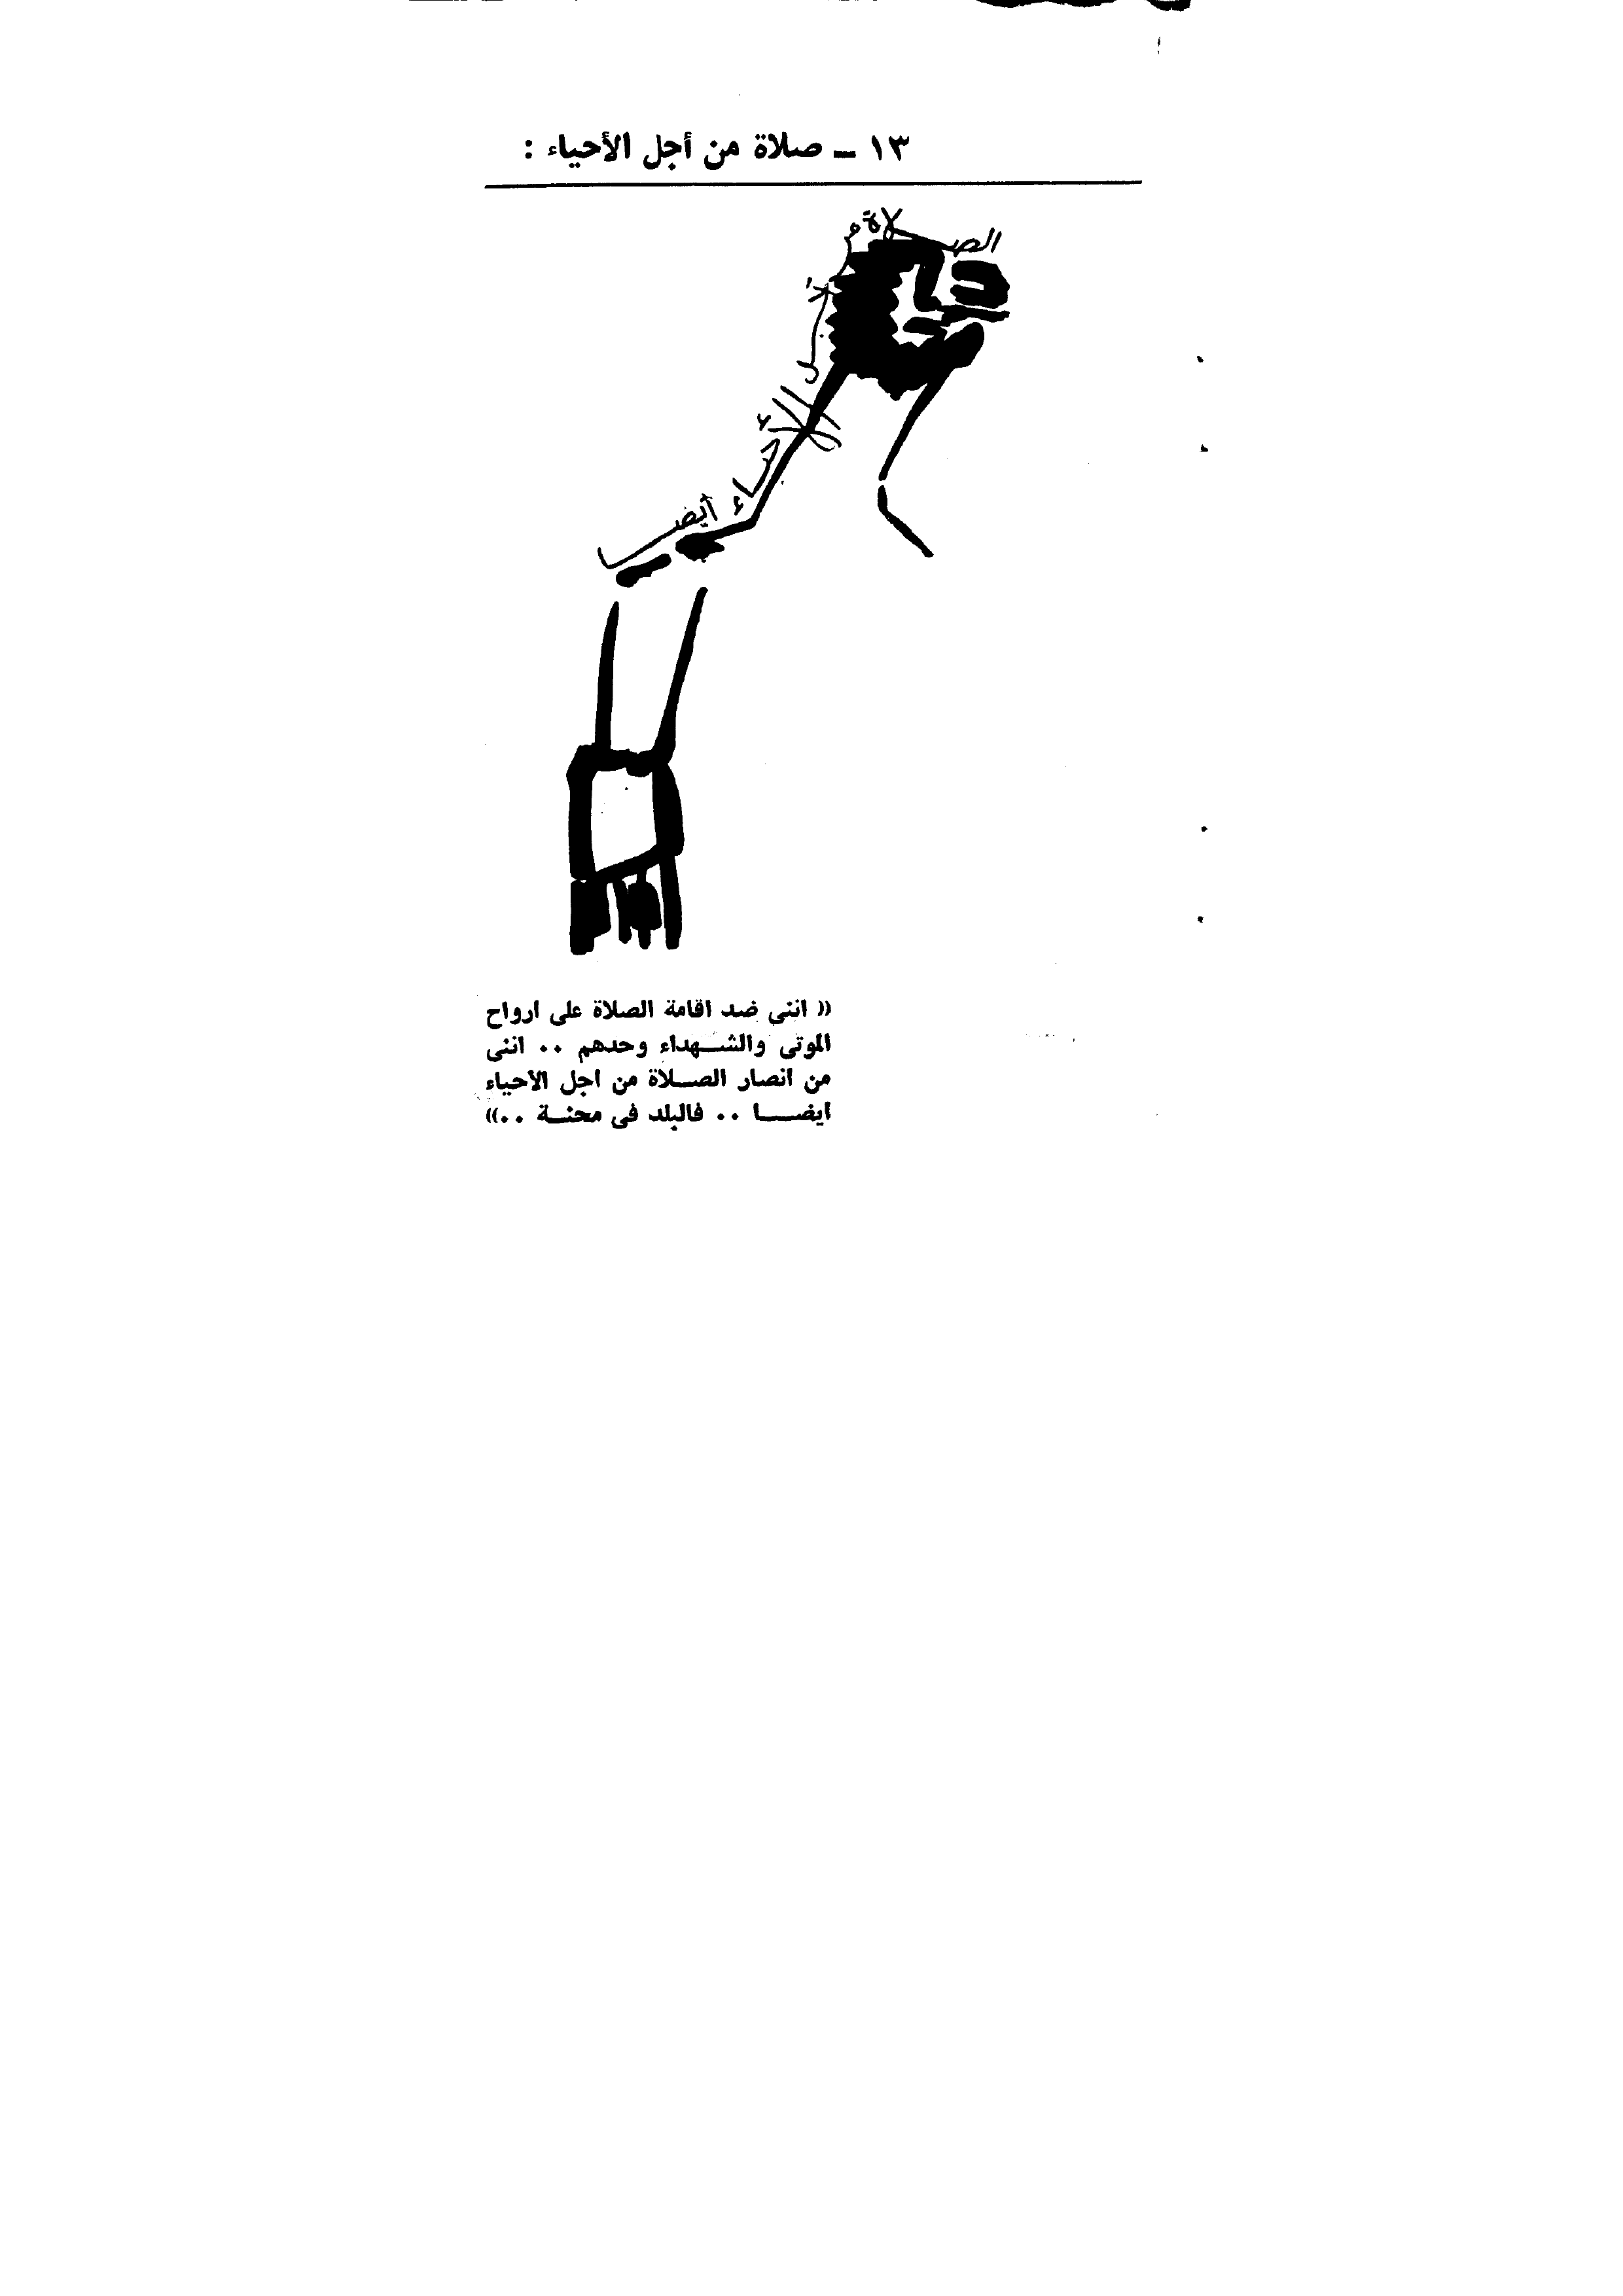 ١٣ ـ صلاة من أجل الأحياء :
الصلاة من أجل الأحياء أيضا
(( اننى ضد اقامة الصلاة على ارواح
الموتى والشهداء وحدهم .. اننى
من انصار الصلاة من اجل الأحياء
ايضا .. فالبلد فى محنة ..))